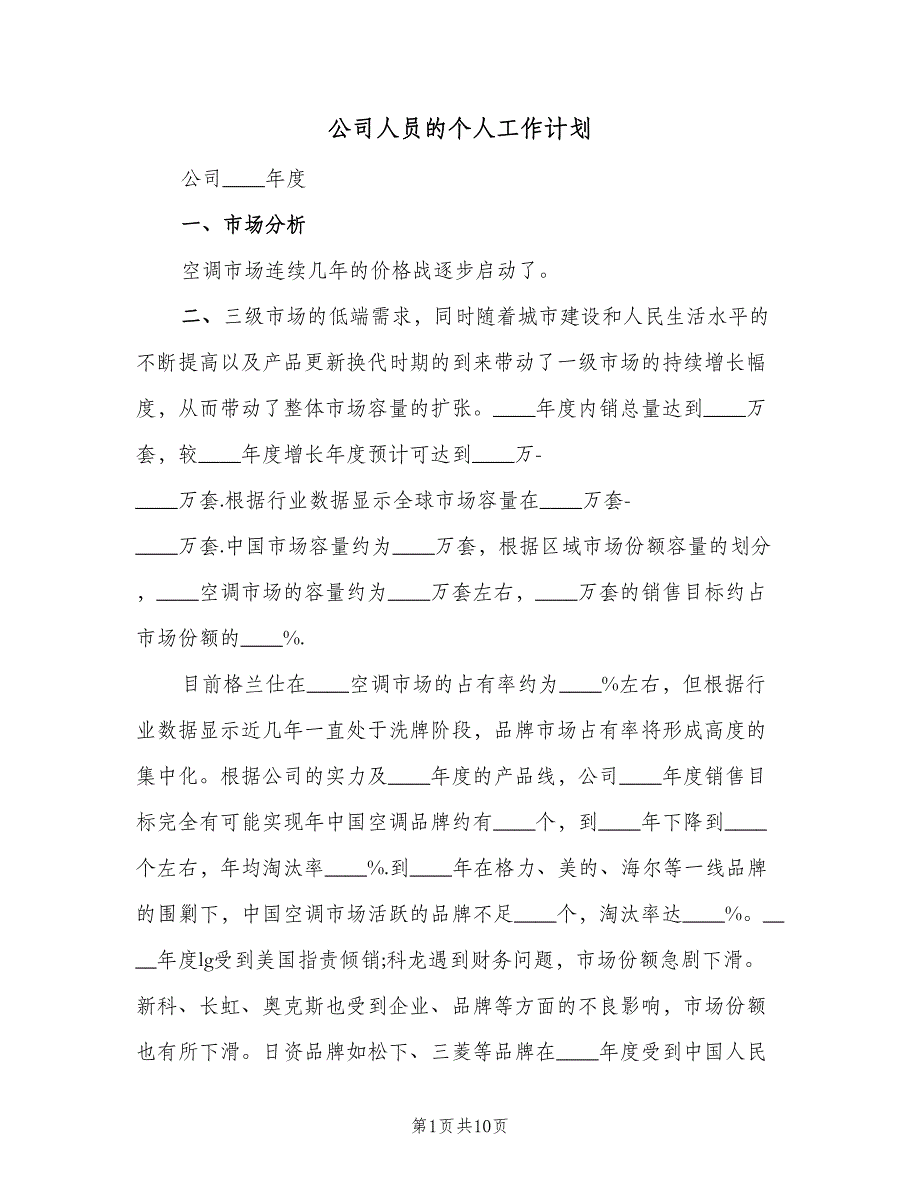 公司人员的个人工作计划
公司____年度
一、市场分析
空调市场连续几年的价格战逐步启动了。
二、三级市场的低端需求，同时随着城市建设和人民生活水平的
不断提高以及产品更新换代时期的到来带动了一级市场的持续增长幅
度，从而带动了整体市场容量的扩张。____年度内销总量达到____万
套，较____年度增长年度预计可达到____万-
____万套.根据行业数据显示全球市场容量在____万套-
____万套.中国市场容量约为____万套，根据区域市场份额容量的划分
，____空调市场的容量约为____万套左右，____万套的销售目标约占
市场份额的____%.
目前格兰仕在____空调市场的占有率约为____%左右，但根据行
业数据显示近几年一直处于洗牌阶段，品牌市场占有率将形成高度的
集中化。根据公司的实力及____年度的产品线，公司____年度销售目
标完全有可能实现年中国空调品牌约有____个，到____年下降到____
个左右，年均淘汰率____%.到____年在格力、美的、海尔等一线品牌
的围剿下，中国空调市场活跃的品牌不足____个，淘汰率达____%。__
__年度lg受到美国指责倾销;科龙遇到财务问题，市场份额急剧下滑。
新科、长虹、奥克斯也受到企业、品牌等方面的不良影响，市场份额
也有所下滑。日资品牌如松下、三菱等品牌在____年度受到中国人民
第1页共10页